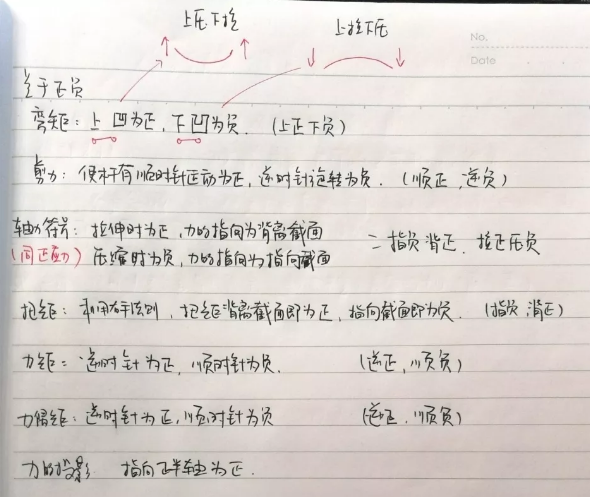 上压下拉
上拉下压
No.
Date
关于正负
弯矩：上凹为正，下凹为负．（上正下负）
剪力：使杆有顺时针运动为正，逆时针旋转为负．（顺正，逆负）
轴力符号：拉伸时为正，力的指向为背离截面
（同正应力）压缩时为负，力的指向为指向截面
＝指负背正．拉正压负
扭矩：利用右手法则，扭矩背离截面即为正，指向截面即为负．（指负，背正）
力矩：逆时针为正，顺时针为负．（逆正，顺负）
力偶矩：逆时针为正，顺时针为负（逆正，顺负）
力的投影 指向正半轴为正．